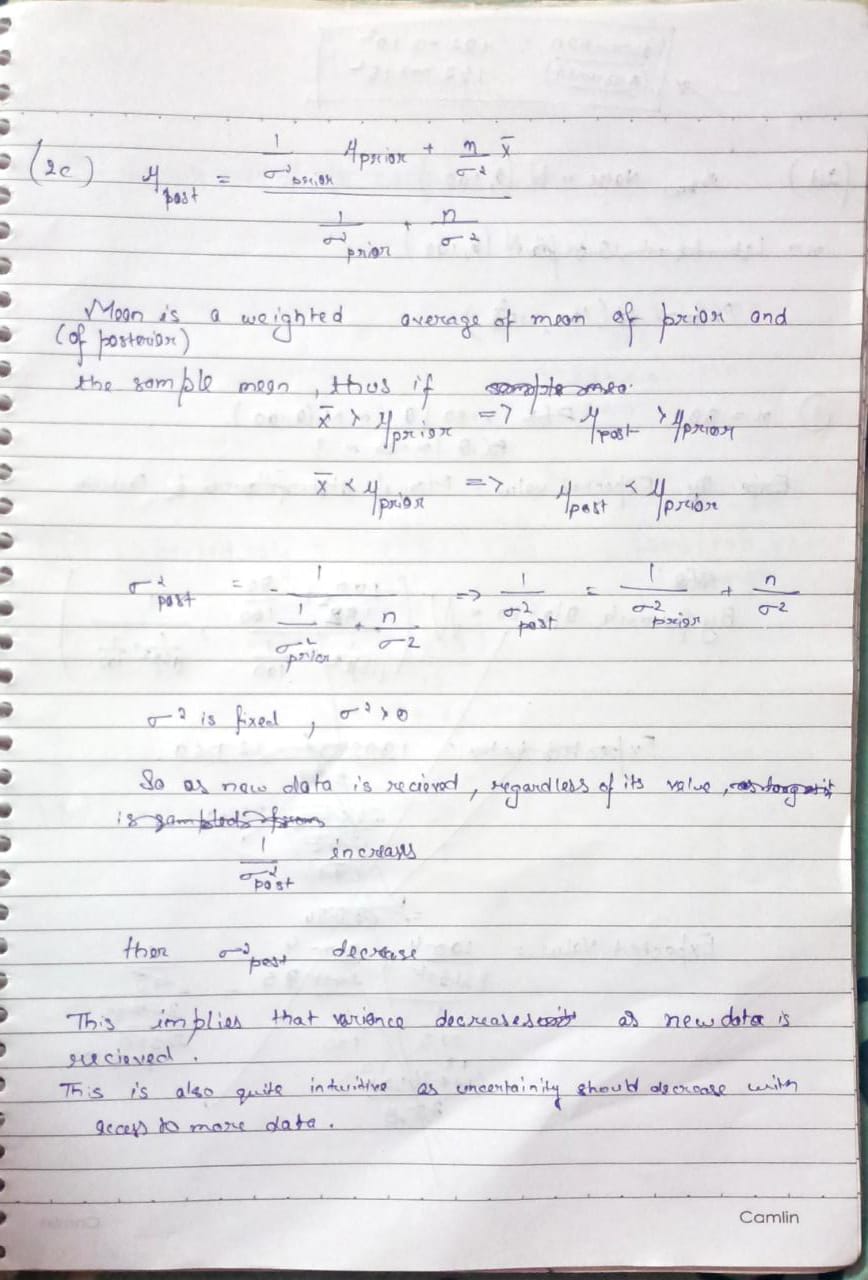 (2c) μ_post = (1/σ²_prior μ_prior + n/σ² x̄) / (1/σ²_prior + n/σ²)
Mean is a weighted average of mean of prior and
(of posterior)
the sample mean, thus if
x̄ > μ_prior => μ_post > μ_prior
x̄ < μ_prior => μ_post < μ_prior
σ²_post = 1 / (1/σ²_prior + n/σ²) => 1/σ²_post = 1/σ²_prior + n/σ²
σ² is fixed, σ² > 0
So as new data is recieved, regardless of its value,
1/σ²_post increases
then σ²_post decrease
This implies that variance decreases as new data is
recieved.
This is also quite intuitive as uncertainity should decrease with
access to more data.
Camlin